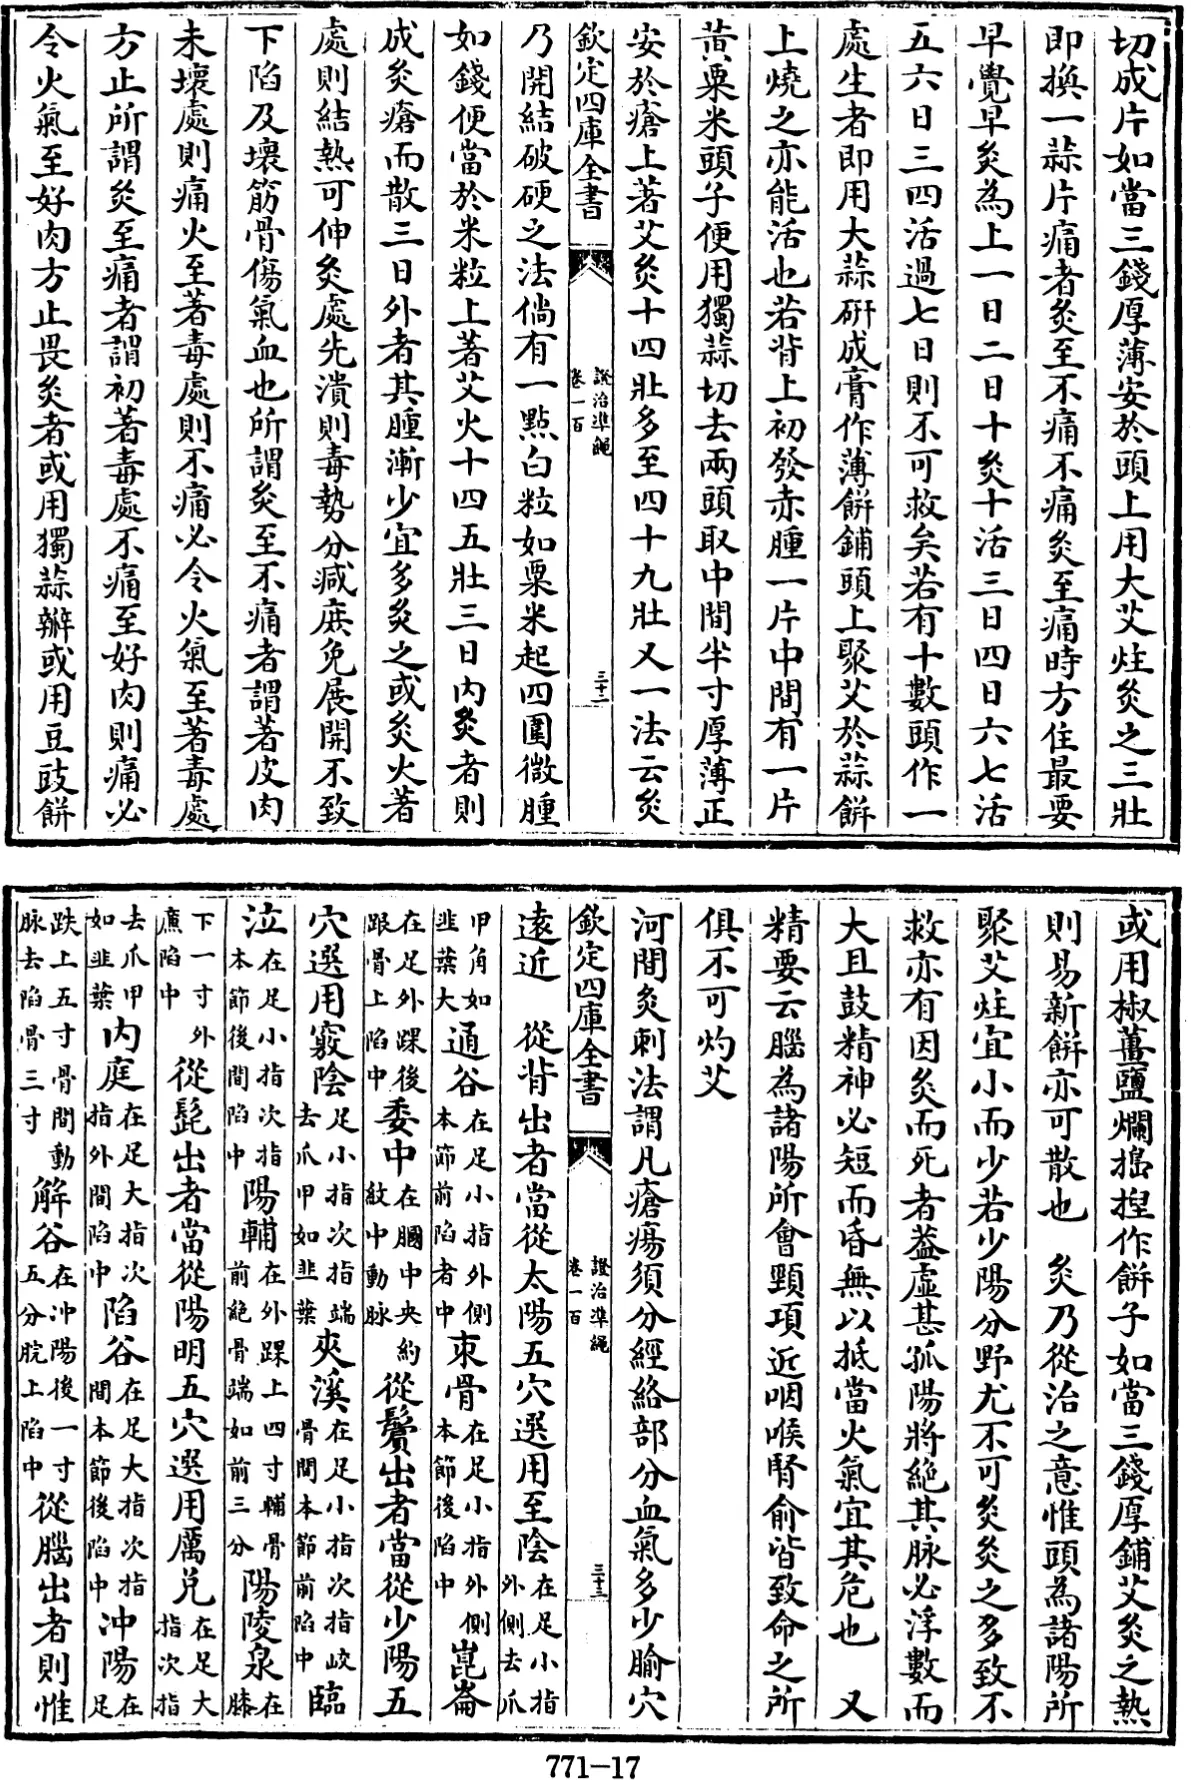 切成片如當三錢厚薄安於頭上用大艾炷灸之三壯
即換一蒜片痛者灸至不痛不痛灸至痛時方住最要
早覺早灸為上一日二日十灸十活三日四日六七活
五六日三四活過七日則不可救矣若有十數頭作一
處生者即用大蒜研成膏作薄餅鋪頭上聚艾於蒜餅
上燒之亦能活也若背上初發赤腫一片中間有一片
黃粟米頭子便用獨蒜切去兩頭取中間半寸厚薄正
安於瘡上著艾灸十四壯多至四十九壯又一法云灸
欽定四庫全書
證治準繩
卷一百
三十二
乃開結破硬之法倘有一點白粒如粟米起四圍微腫
如錢便當於米粒上著艾火十四五壯三日內灸者則
成灸瘡而散三日外者其腫漸少宜多灸之或灸火著
處則結熱可伸灸處先潰則毒勢分減庶免展開不致
下陷及壞筋骨傷氣血也所謂灸至不痛者謂著皮肉
未壞處則痛火至著毒處則不痛必令火氣至著毒處
方止所謂灸至痛者謂初著毒處不痛至好肉則痛必
令火氣至好肉方止畏灸者或用獨蒜瓣或用豆豉餅
或用椒薑鹽爛搗揑作餅子如當三錢厚鋪艾灸之熱
則易新餅亦可散也　灸乃從治之意惟頭為諸陽所
聚艾炷宜小而少若少陽分野尤不可灸灸之多致不
救亦有因灸而死者葢虛甚孤陽將絕其脉必浮數而
大且鼓精神必短而昏無以抵當火氣宜其危也　又
精要云腦為諸陽所會頸項近咽喉腎俞皆致命之所
俱不可灼艾
河間灸刺法謂凡瘡瘍須分經絡部分血氣多少腧穴
欽定四庫全書
證治準繩
卷一百
三十三
遠近　從背出者當從太陽五穴選用至陰在足小指外側去爪
甲角如韭葉大通谷在足小指外側本節前陷者中束骨在足小指外側本節後陷中崑崙
在足外踝後跟骨上陷中委中在膕中央約紋中動脉從鬢出者當從少陽五
穴選用竅陰足小指次指端去爪甲如韭葉夾溪在足小指次指岐骨間本節前陷中臨
泣在足小指次指本節後間陷中陽輔在外踝上四寸輔骨前絶骨端如前三分陽陵泉在膝
下一寸外廉陷中從髭出者當從陽明五穴選用厲兌在足大指次指
去爪甲如韭葉內庭在足大指次指外間陷中陷谷在足大指次指間本節後陷中冲陽在足
跌上五寸骨間動脉去陷骨三寸解谷在冲陽後一寸五分腕上陷中從腦出者則惟
771-17